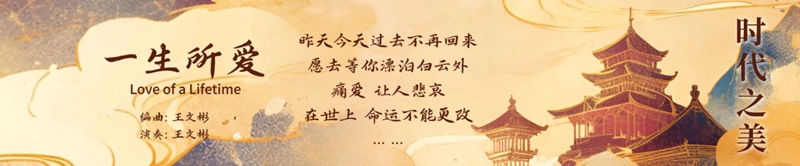 一生所爱
Love of a Lifetime
编曲: 王文彬
演奏: 王文彬
昨天今天过去不再回来
愿去等你漂泊白云外
痛爱 让人悲哀
在世上 命运不能更改
... ...
时代之美